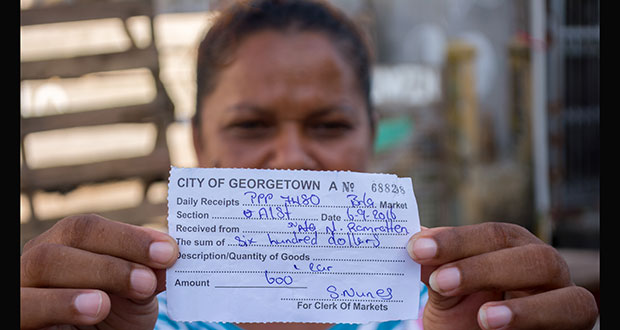 CITY OF GEORGETOWN A No 68828
Daily Receipts PPP 7480 Market
Section Date 6.9.2016
Received from N. Ramratten
The sum of Six hundred dollars
Description/Quantity of Goods
1 car
Amount 600 S. Nunes
For Clerk Of Markets